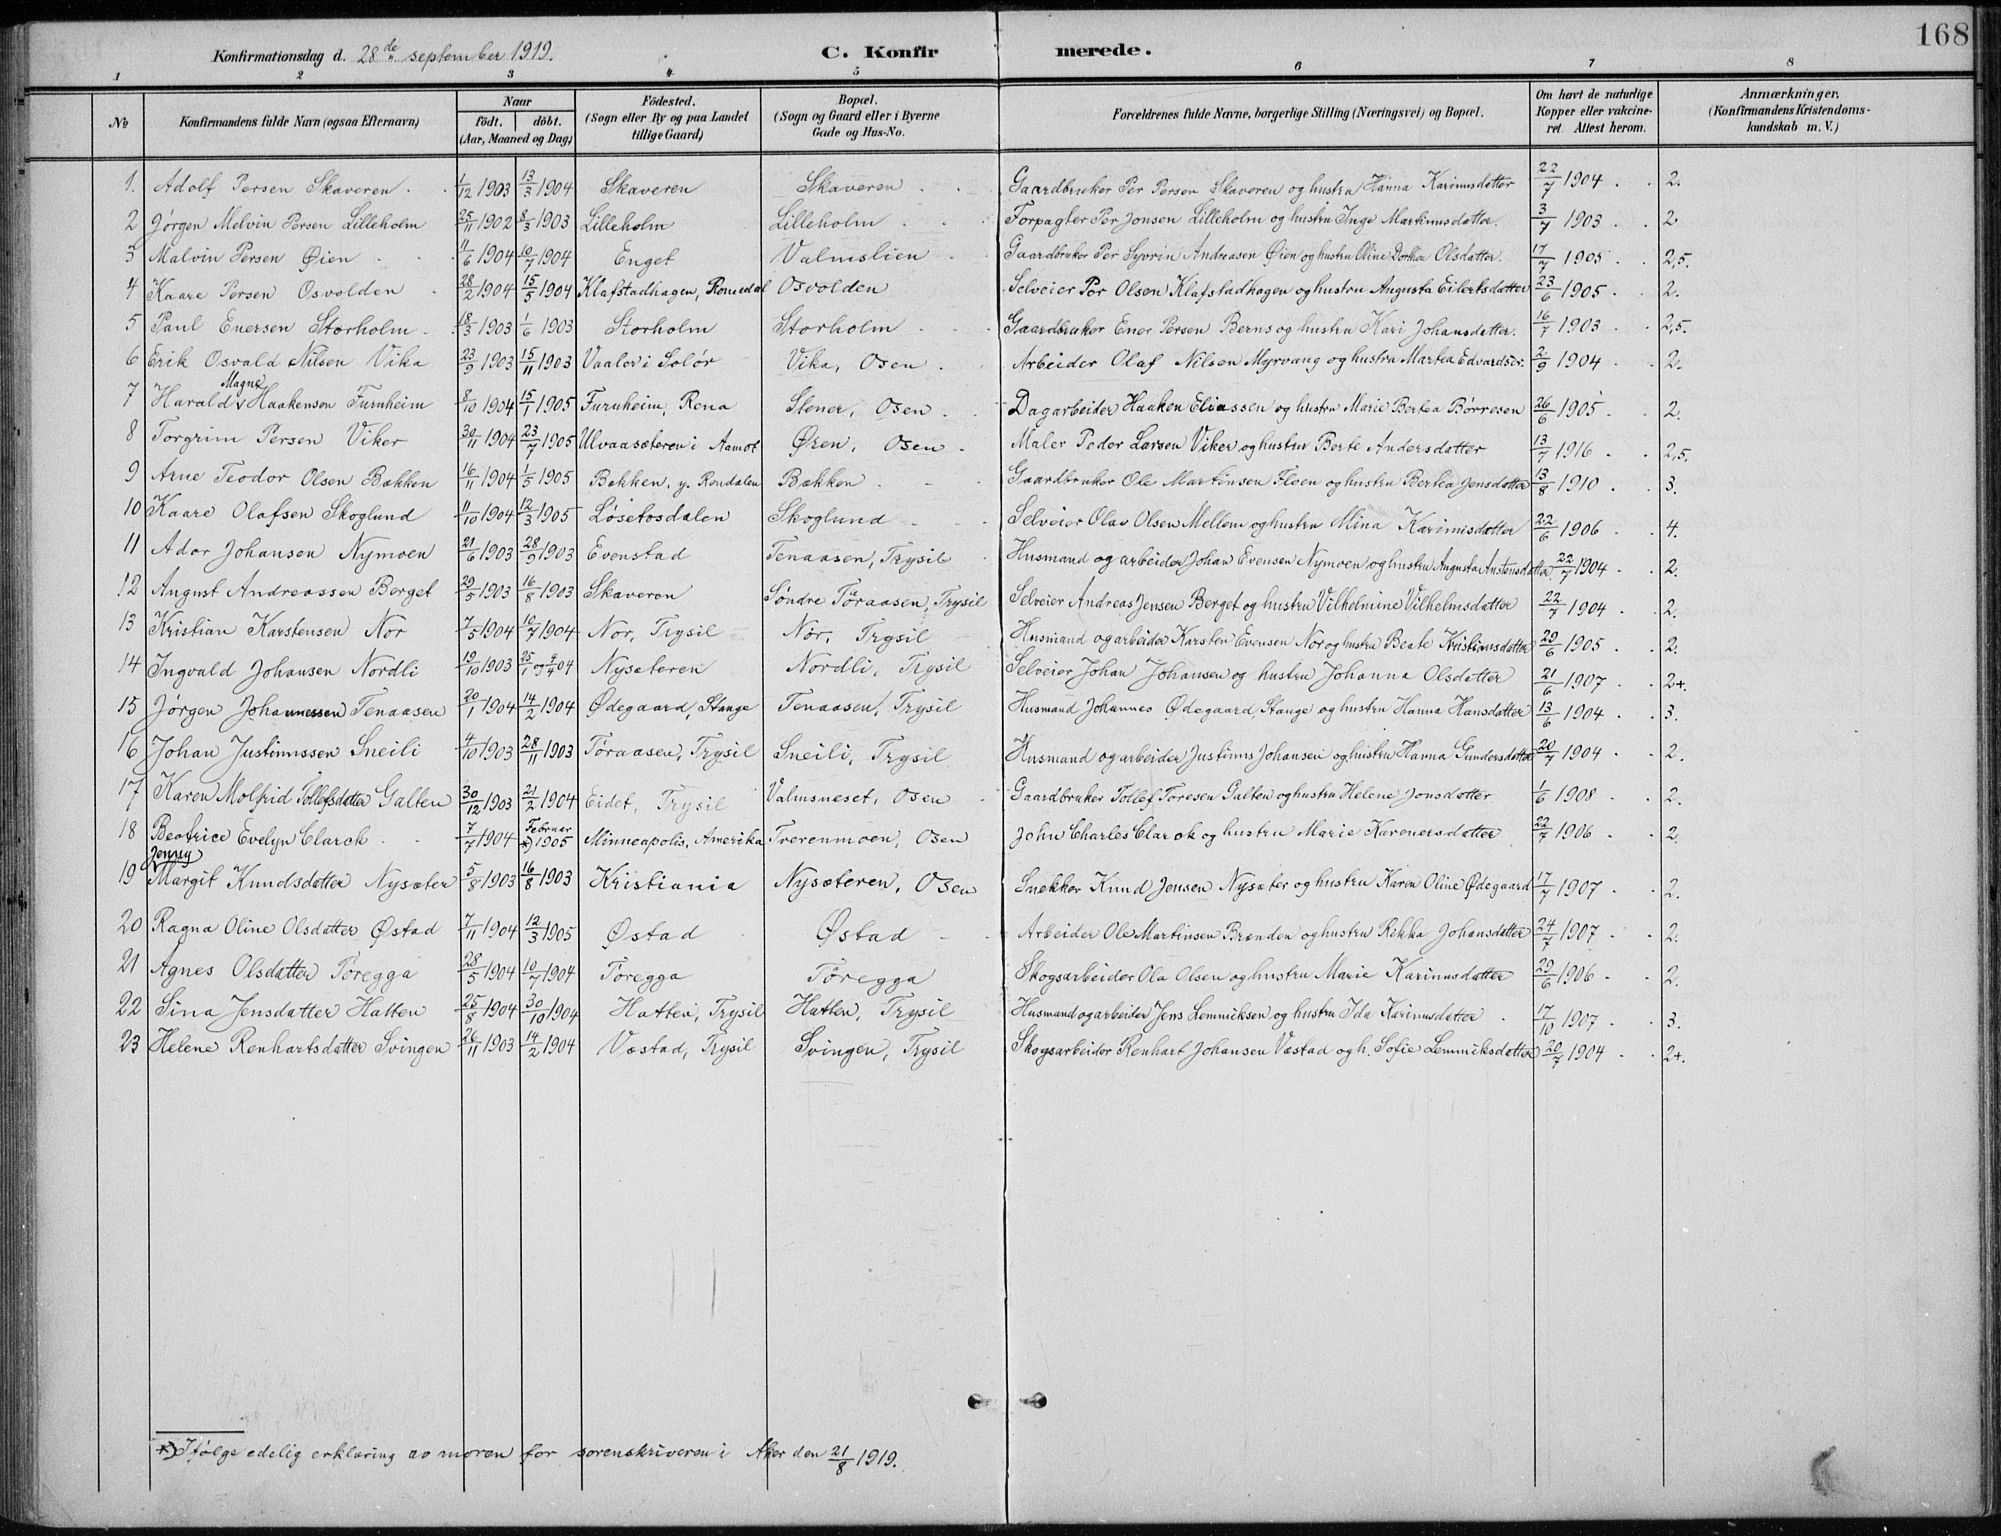 168
Konfirmationsdag d. 28de september 1919. C. Konfirmerede.
1 2 3 4 5 6 7 8
No Konfirmandens fulde Navn (ogsaa Efternavn) Naar födt. döbt. (Aar, Maaned og Dag) Födested. (Sogn eller By og paa Landet tillige Gaard) Bopæl. (Sogn og Gaard eller i Byerne Gade og Hus-No. Forældrenes fulde Navne, borgerlige Stilling (Næringsvei) og Bopæl. Om havt de naturlige Kopper eller vakcineret. Attest herom. Anmærkninger. (Konfirmandens Kristendomskundskab m. V.)
1. Adolf Persen Skaveren 1/12 1903 13/3 1904 Skaveren Skaveren Gaardbruker Per Persen Skaveren og hustru Hanna Karinusdatter 22/7 1904 2.
2 Jørgen Melvin Persen Lilleholm 25/11 1902 8/3 1903 Lilleholm Lilleholm Forpagter Per Jonsen Lilleholm og hustru Inge Martinusdatter. 3/7 1903 2
3 Malvin Persen Øien 11/6 1904 10/7 1904 Enget Valmslien Gaardbruker Per Syvrin Andreasen Øien og hustru Oline Dorthea Olsdatter. 17/7 1905 2,5.
4 Kaare Persen Osvolden 28/2 1904 15/5 1904 Klafstadhagen, Romedal Osvolden Selveier Per Olsen Klafstadhagen og hustru Augusta Eilertsdatter 23/6 1905 2.
5 Paul Enersen Storholm 18/3 1903 1/6 1903 Storholm Storholm Gaardbruker Ener Persen Berns og hustru Kari Johansdatter. 16/7 1903 2,5.
6 Erik Osvald Nilsen Vika 23/9 1903 15/11 1903 Vaaler i Solør Vika, Osen Arbeider Olaf Nilsen Myrvang og hustru Martea Edvardsdr. 2/9 1904 2.
7 Harald Magne Haakensen Furuheim 8/10 1904 15/1 1905 Furuheim, Rena Slener, Osen Dagarbeider Haaken Eliassen og hustru Marie Bertea Børresen 26/6 1905 2.
8 Torgrim Persen Viker 30/11 1904 23/7 1905 Ulvaasæteren i Aamot Øren, Osen Maler Peder Larsen Viker og hustru Berte Andersdatter 13/7 1916 2,5.
9 Arne Teodor Olsen Bækken 16/11 1904 1/5 1905 Bekken, y. Rendalen Bækken Gaardbruker Ole Martinsen Floen og hustru Bertea Jensdatter 13/8 1910 3.
10 Kaare Olafsen Skoglund 11/10 1904 12/3 1905 Løsetosdalen Skoglund Selveier Olav Olsen Mellem og hustru Mina Karinusdatter 22/6 1906 4.
11 Ador Johansen Nymoen 21/6 1903 28/9 1903 Evenstad Tenaasen, Trysil Husmand og arbeider Johan Evensen Nymoen og hustru Augusta Austensdatter 22/7 1904 2.
12 August Andreassen Berget 29/5 1903 16/8 1903 Skaveren Søndre Töraasen, Trysil Selveier Andreas Jensen Berget og hustru Vilhelmine Vilhelmsdatter 22/7 1904 2.
13 Kristian Karstensen Nor 7/5 1904 10/7 1904 Nor, Trysil Nor, Trysil Husmand og arbeider Karsten Evensen Nor og hustru Beate Kristiansdatter 29/6 1905 2.
14 Ingvald Johansen Nordli 19/10 1903 25/1 og 4/4 04 Nysæteren Nordli, Trysil Selveier Johan Johansen og hustru Johanna Olsdatter 21/6 1907 2+.
15 Jørgen Johannessen Tenaasen 20/1 1904 14/2 1904 Ødegaard, Stange Tenaasen, Trysil Husmand Johannes Ødegaard, Stange og hustru Hanna Hansdatter 13/6 1904 3.
16 Johan Justinussen Sneili 4/10 1903 28/11 1903 Töraasen, Trysil Sneili, Trysil Husmand og arbeider Justinus Johansen og hustru Hanna Gundersdatter 20/7 1904 2.
17 Karen Molfrid Tollefsdatter Galten 30/12 1903 21/2 1904 Eidet, Trysil Valmsneset, Osen Gaardbruker Tollef Toresen Galten og hustru Helene Jonsdatter 1/6 1908 2.
18 Beatrice Evelyn Clarck 7/7 1904 Februar *) 1905 Minneapolis, Amerika Tverenmoen, Osen John Charles Clarck og hustru Marie Karenersdatter 22/7 1906 2.
19 Jenny Margit Knudsdatter Nysæter 5/8 1903 16/8 1903 Kristiania Nysæteren, Osen Snekker Knud Jensen Nysæter og hustru Karen Oline Ødegaard 17/7 1907 2.
20 Ragna Oline Olsdatter Østad 7/11 1904 12/3 1905 Østad Østad Arbeider Ole Martinsen Brænden og hustru Rikka Johansdatter 24/7 1907 2.
21 Agnes Olsdatter Töregga 28/5 1904 10/7 1904 Töregga Töregga Skogsarbeider Ola Olsen og hustru Marie Karinusdatter 29/6 1906 2.
22 Sina Jensdatter Hatten 25/8 1904 30/10 1904 Hatten, Trysil Hatten, Trysil Husmand og arbeider Jens Lemmiksen og hustru Ida Karinusdatter 17/10 1907 3.
23 Helene Renhartsdatter Svingen 26/11 1903 14/2 1904 Væstad, Trysil Svingen, Trysil Skogsarbeider Renhart Johansen Væstad og h. Sofie Lemmiksdatter 20/7 1904 2+.
*) Ifølge edelig erklæring av moren for sorenskriveren i Aker den 21/8 1919.